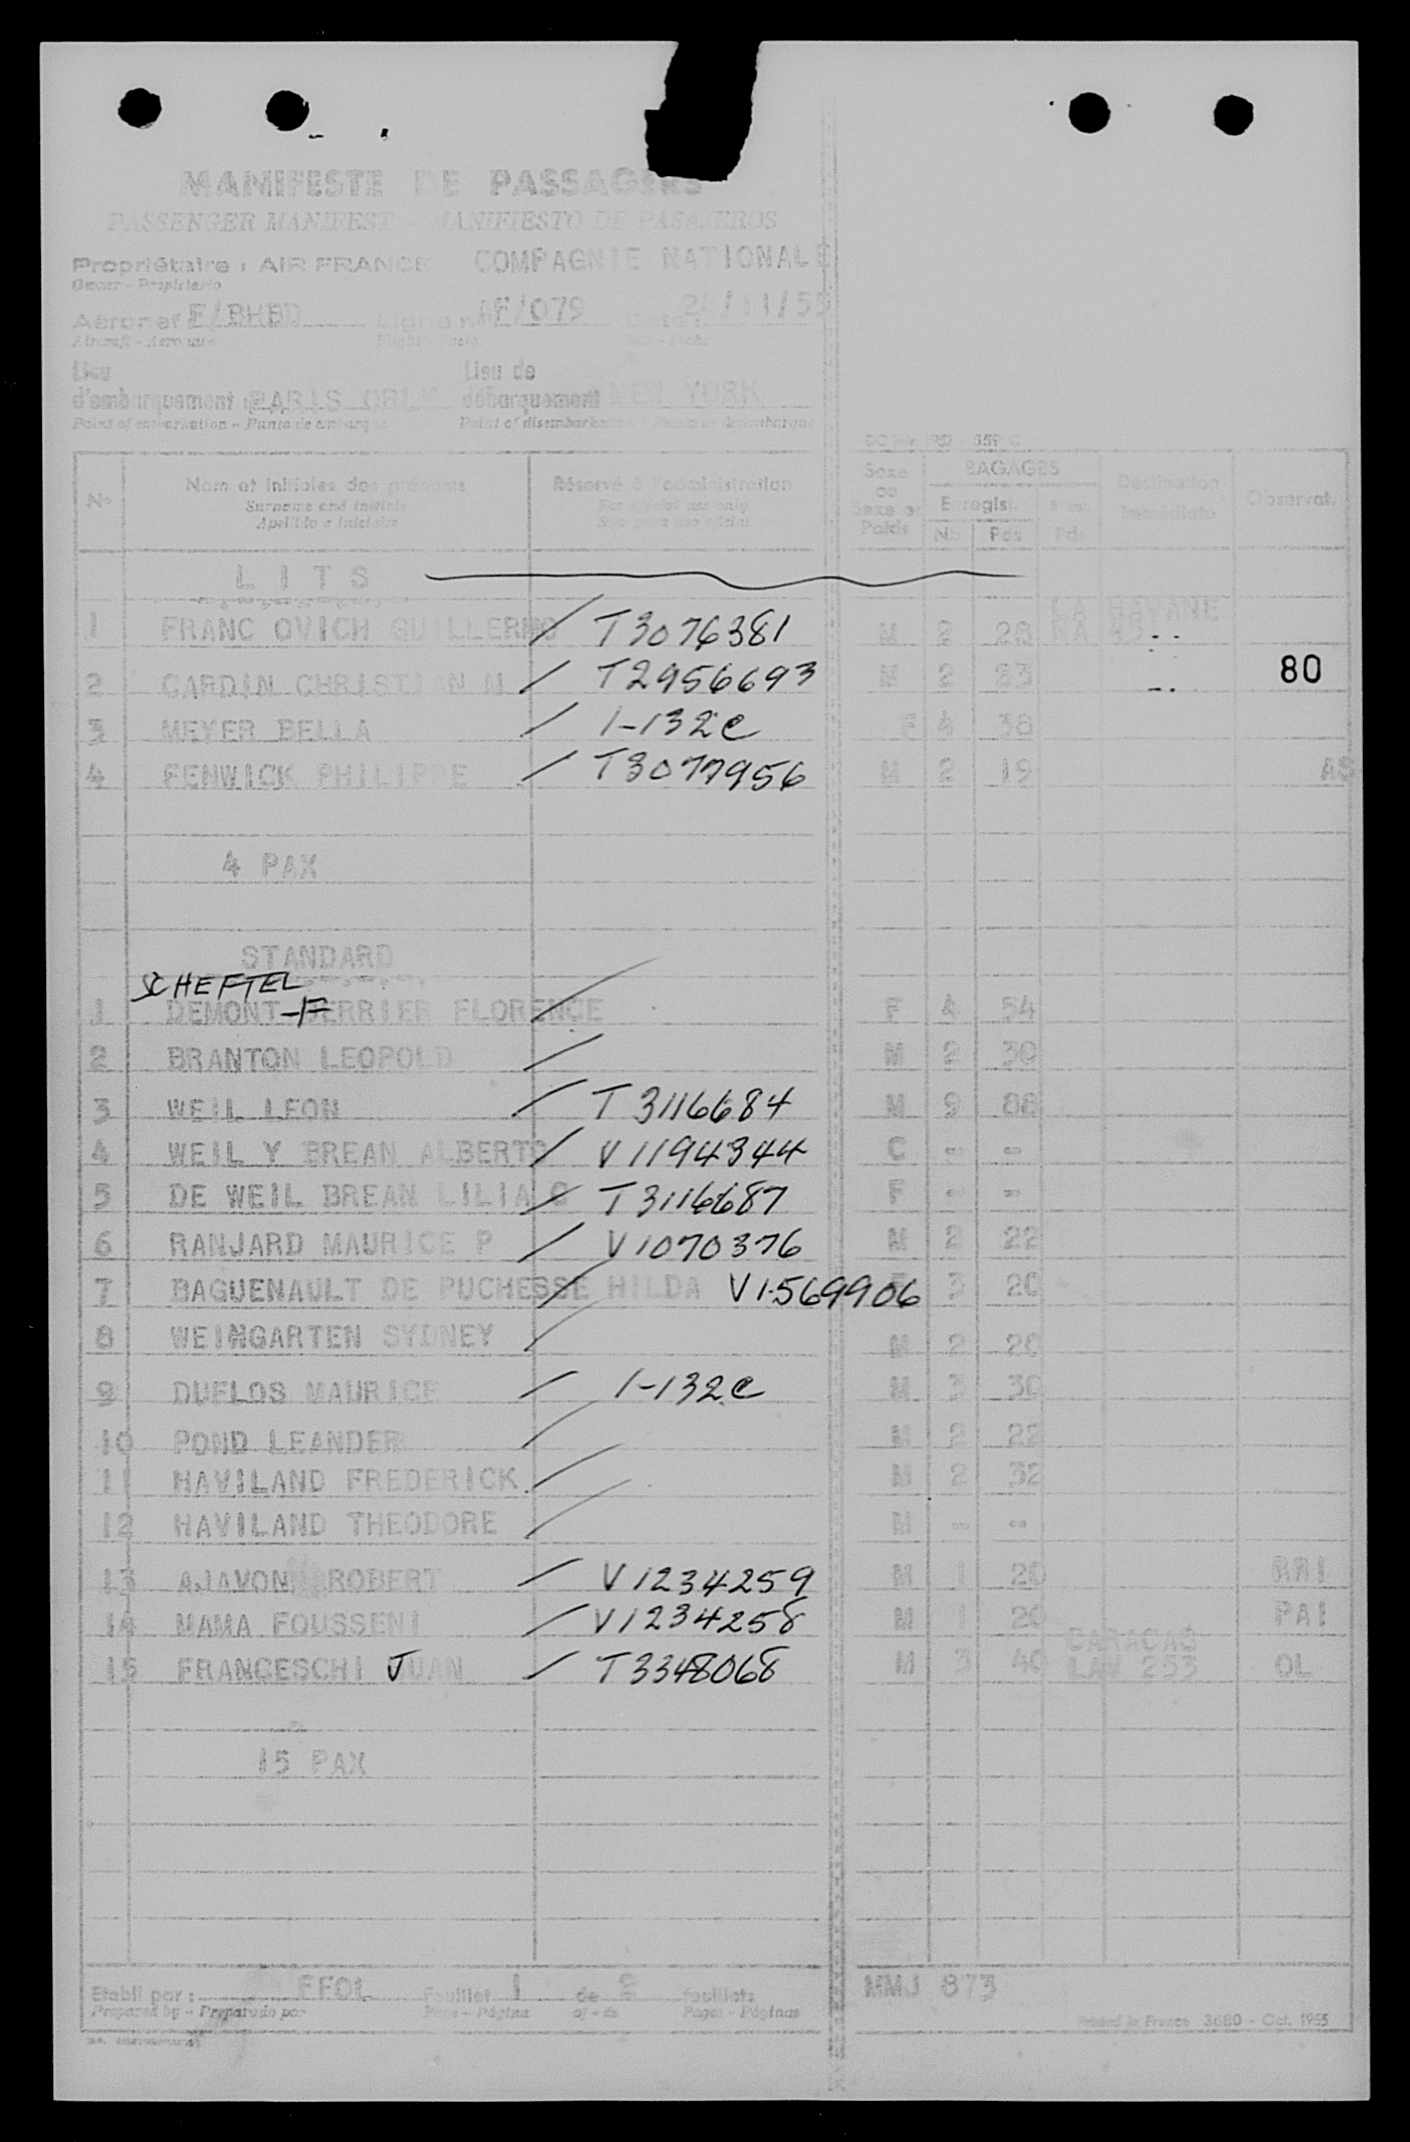 MANIFESTE DE PASSAGERS
PASSENGER MANIFEST - MANIFIESTO DE PASAJEROS
Propriétaire : AIR FRANCE COMPAGNIE NATIONALE
Owner - Propietario
Aéronef F/BHBD AF/079 /11/55
Lieu d'embarquement PARIS ORLY Lieu de débarquement NEW YORK
Point of embarkation - Punto de embarque Point of disembarkation
No Nom et initiales des prénoms Réservé à l'administration Sexe ou Sexe et Poids BAGAGES Enregist. No Pds Pds Destination Immédiate Observat.
Surname and initials
Apellido e iniciales
LITS
1 FRANC OVICH GUILLERMO / T3076381 M 2 28 LA HAVANE
2 CARDIN CHRISTIAN M / T2956693 M 2 33 80
3 MEYER BELLA / 1-132c F 4 38
4 FENWICK PHILIPPE / T3077956 M 2 19
4 PAX
STANDARD
SCHEFTEL -F
1 DEMONT BERRIER FLORENCE / F 4 54
2 BRANTON LEOPOLD / M 2 30
3 WEIL LEON / T3116684 M 9 88
4 WEIL Y BREAN ALBERTO / V1194344 C - -
5 DE WEIL BREAN LILIA C / T3116687 F - -
6 RANJARD MAURICE P / V1070376 M 2 22
7 BAGUENAULT DE PUCHESSE HILDA V1569906 3 20
8 WEINGARTEN SYDNEY / M 2 20
9 DUFLOS MAURICE / 1-132c M 3 30
10 POND LEANDER / M 2 22
11 HAVILAND FREDERICK / M 2 32
12 HAVILAND THEODORE / M - -
13 AJAVON ROBERT / V1234259 M 1 20
14 MAMA FOUSSENI / V1234258 M 1 20 PAI
15 FRANCESCHI JUAN / T3348068 M 3 40 CARACAS LAV 253 OL
15 PAX
Etabli par : FFOL Feuillet 1 de 2 feuillets MMJ 873
Prepared by - Preparado por Page - Página of - de Pages - Páginas
Printed in France 3680 - Oct. 1955